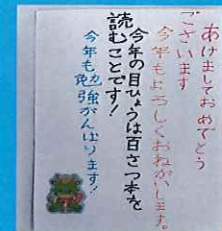 あけましておめでとう
ございます
今年もよろしくおねがいします。
今年の目ひょうは百さつ本を
読むことです！
今年も勉強がんばります！